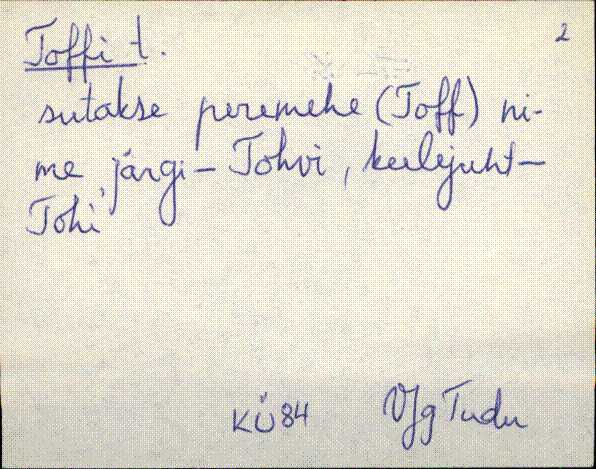 Toffi t. 2
sutakse peremehe (Toff) ni-
me järgi – Tohvi, keelejuht –
Tohi
KÜ 84 VJg Tudu